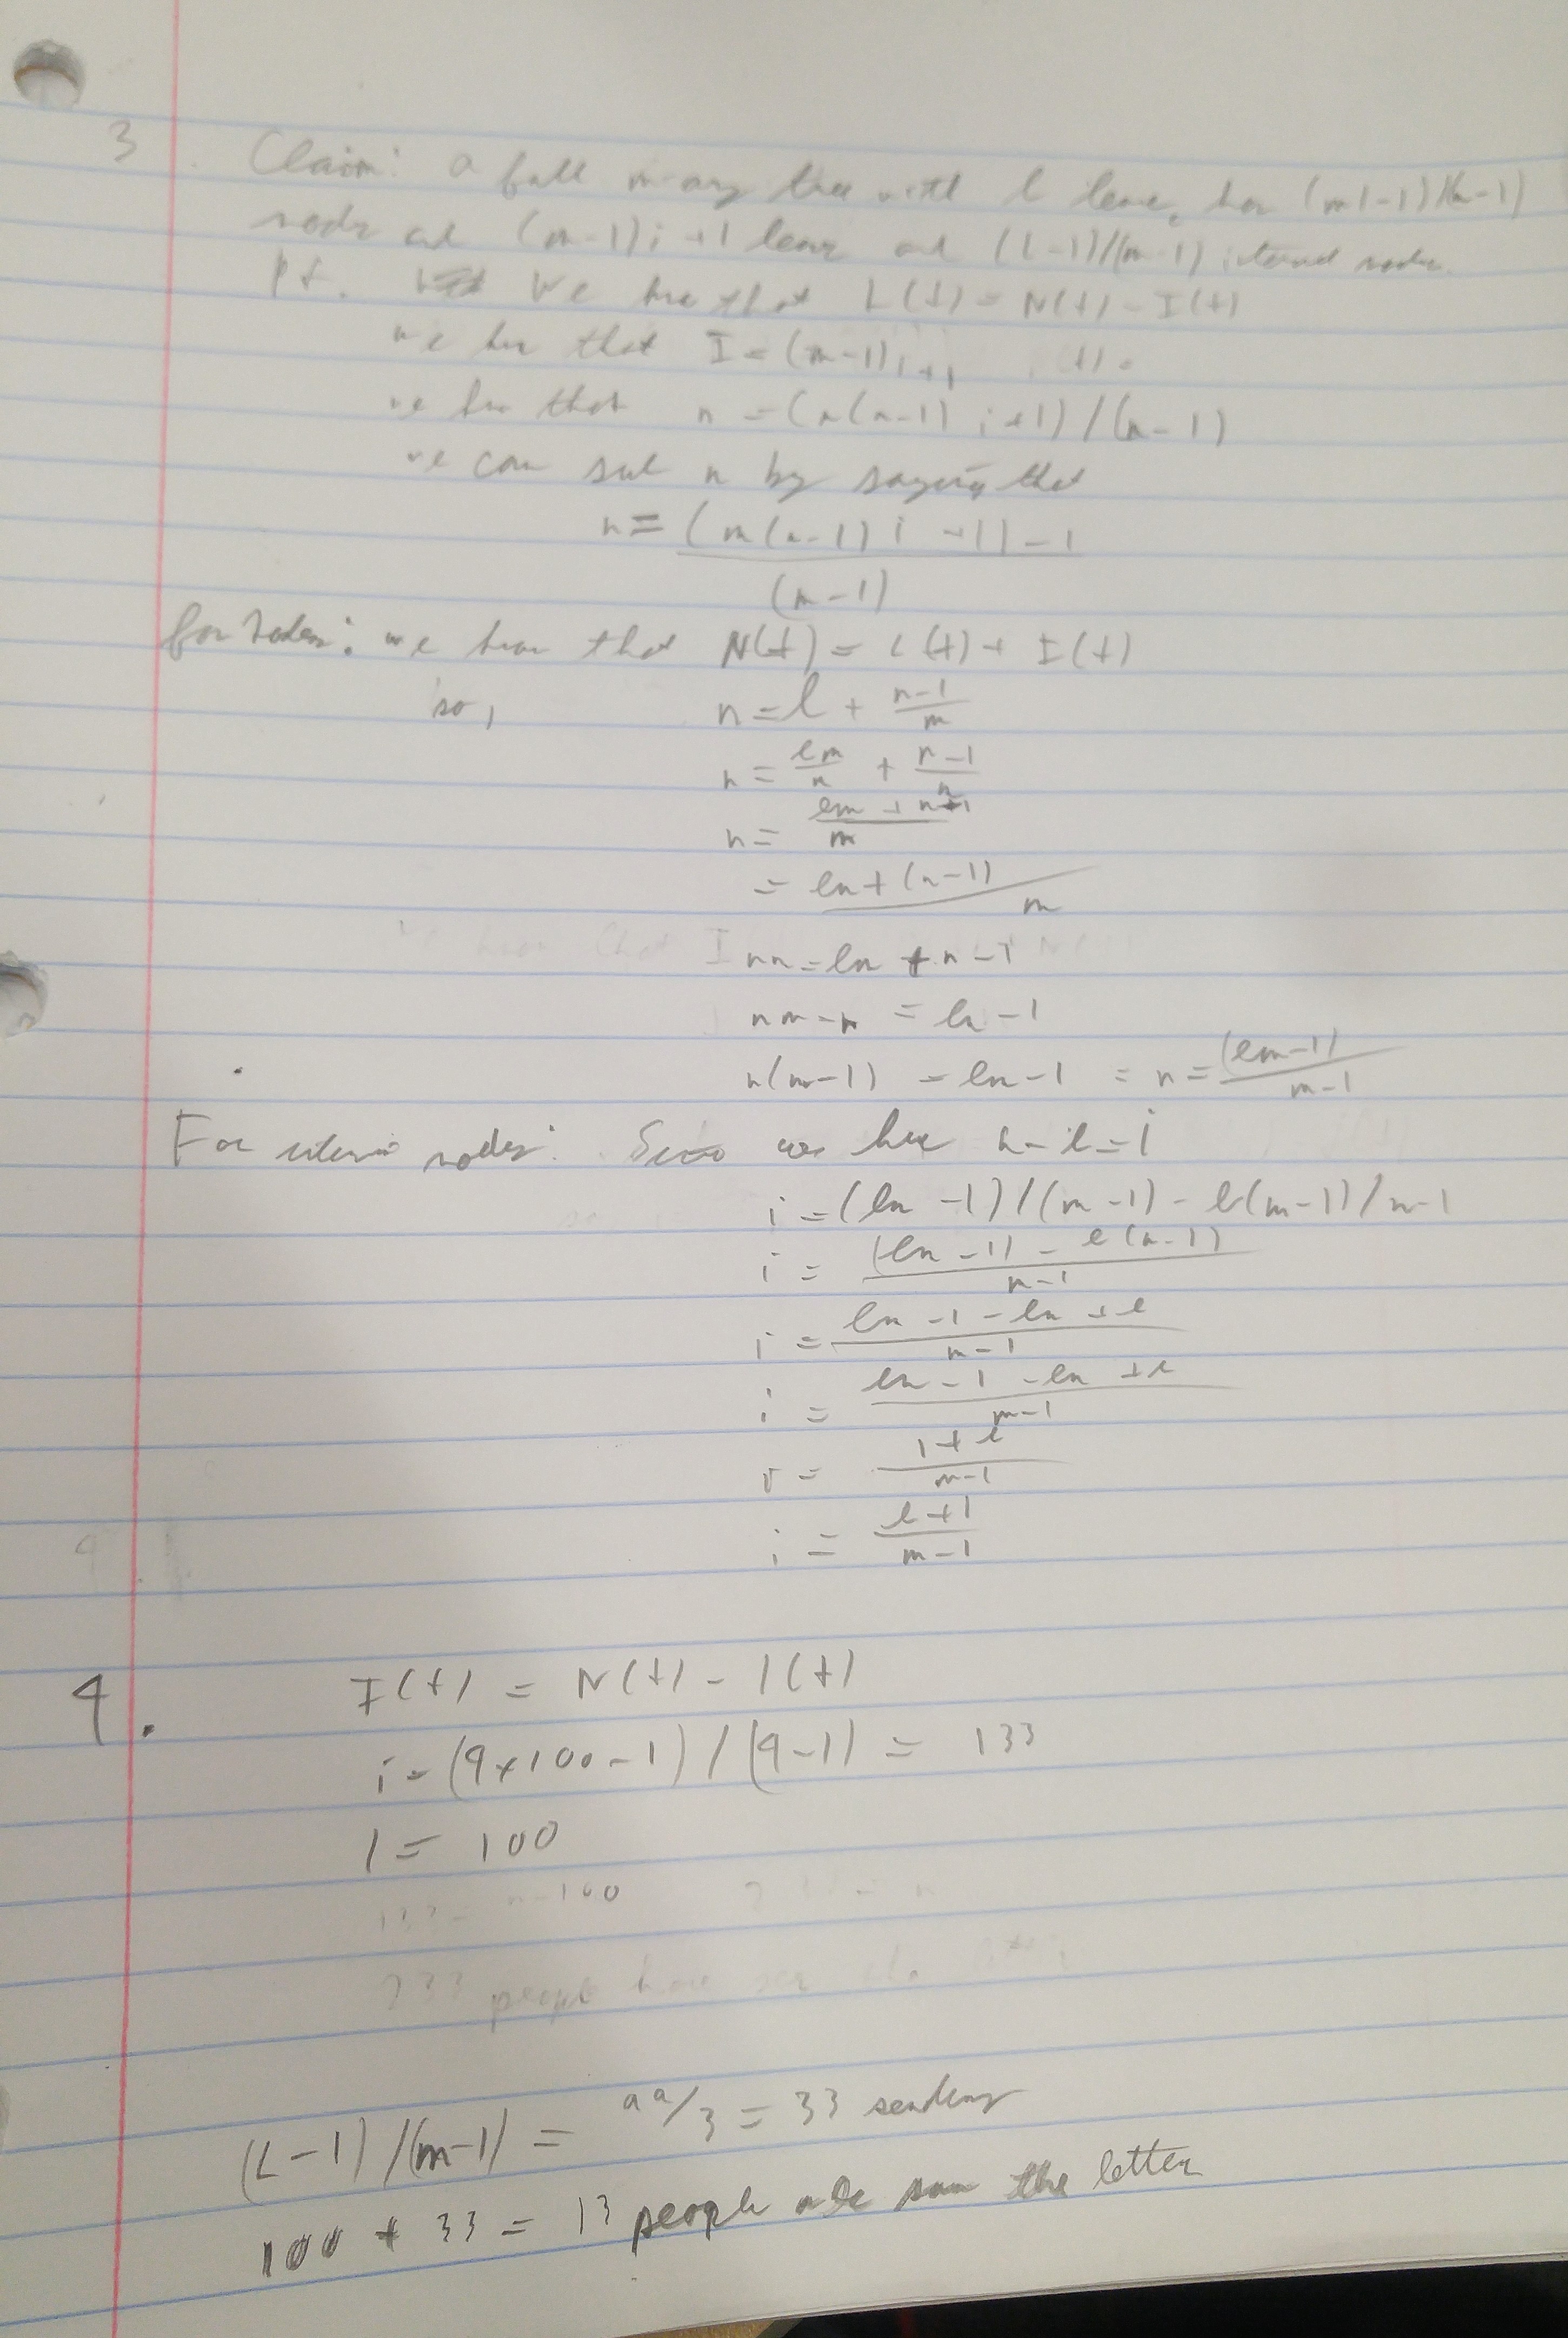 3 Claim: a full m-ary tree with l leave, has (ml-1)/(m-1)
node and (m-1)i+1 leave and (L-1)/(m-1) internal nodes.
Pf. We have that L(t) = N(t) - I(t)
we have that I = (m-1)i+1
we have that n = (m(m-1) i+1) / (m-1)
we can sub n by saying that
n = (m(m-1) i +1) - 1
(m-1)
for nodes: we have that N(t) = L(t) + I(t)
so, n = l + n-1/m
n = lm/m + n-1/m
n = lm + n-1/m
= lm + (n-1)/m
nm = lm + n - 1
nm - n = lm - 1
n(m-1) = lm - 1 = n = (lm-1)/m-1
For interior nodes: Since we have n - l = i
i = (lm - 1) / (m - 1) - l(m-1) / m-1
i = (lm - 1) - l(m-1)/m-1
i = lm - 1 - lm + l/m-1
i = lm - 1 - lm + l/m-1
i = 1 + l/m-1
i = l+1/m-1
4. I(t) = N(t) - l(t)
i = (4×100-1) / (4-1) = 133
l = 100
(L-1)/(m-1) = 99/3 = 33 sending
100 + 33 = 13 people saw the letter